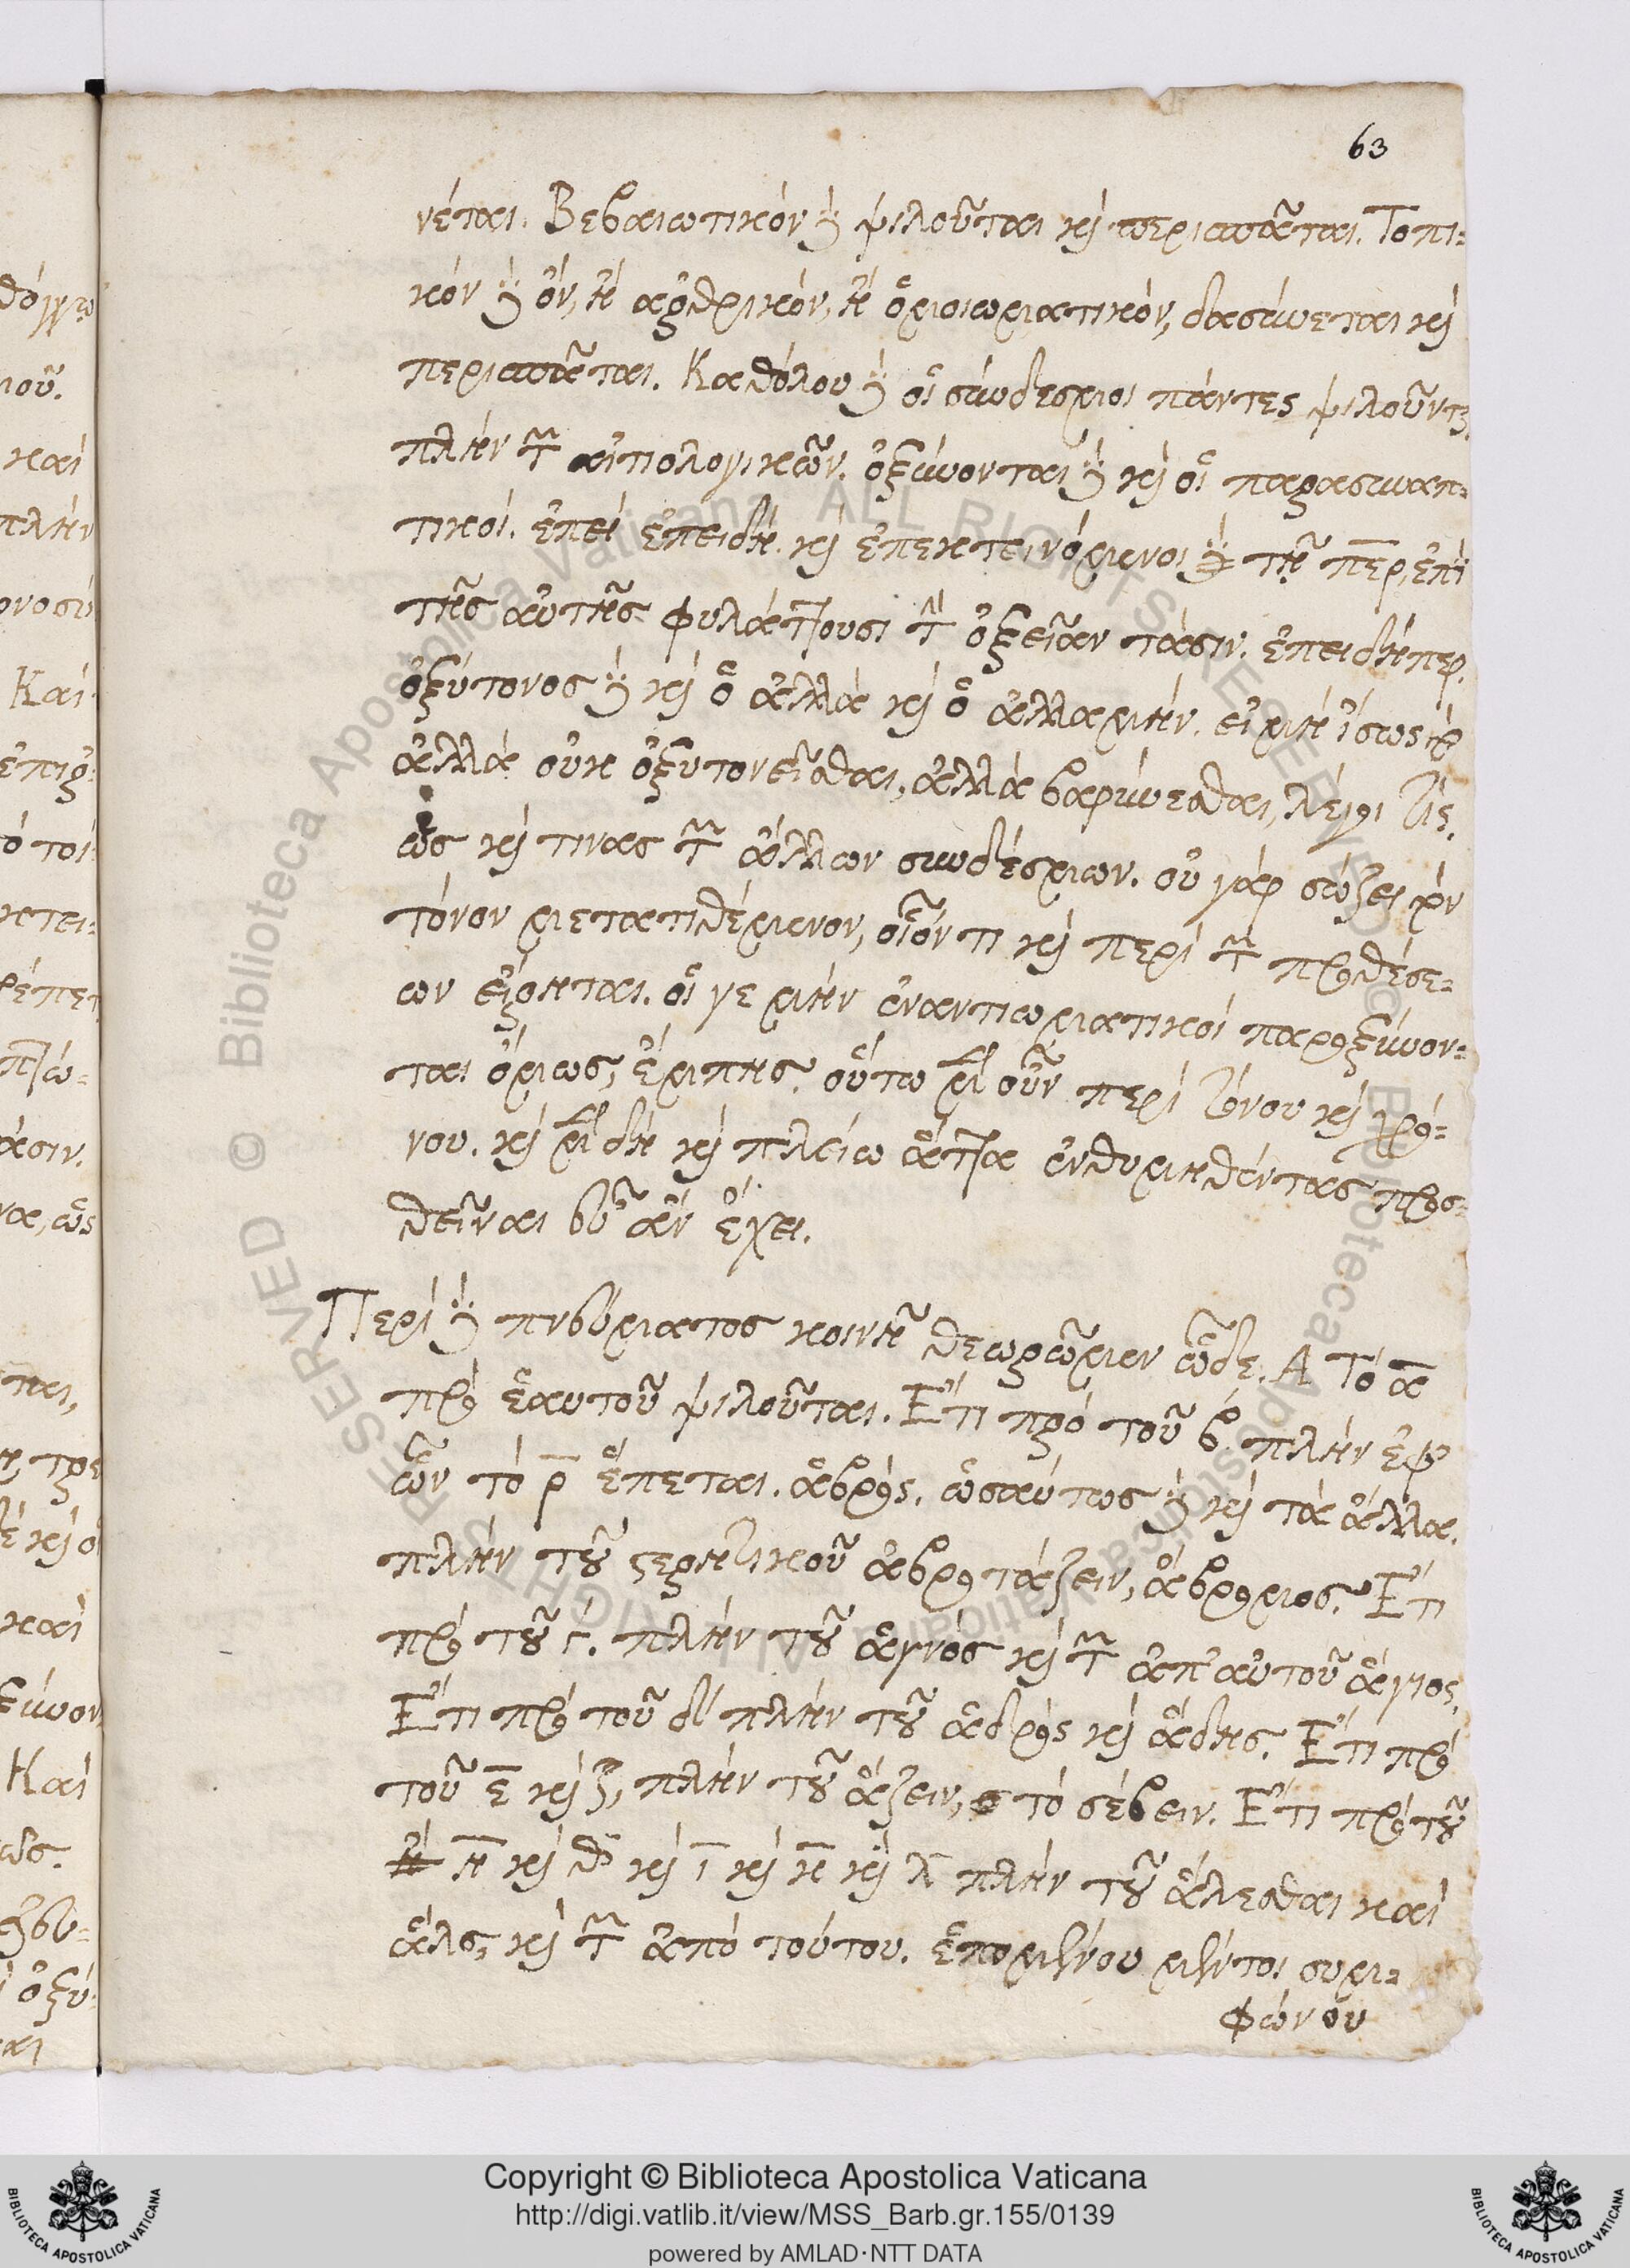 63
νέται. Βεβαιωτικόν δὲ ψιλοῦται καὶ περισπᾶται. Τοπι=
κόν δὲ ὄν, ἢ ἀρθρικόν, ἢ ὁμοιωματικόν, δασύνεται καὶ
περισπᾶται. Καθόλου δὲ οἱ σύνδεσμοι πάντες ψιλοῦνται
πλὴν τῶν αἰτιολογικῶν. ὀξύνονται δὲ καὶ οἱ παρασυναπ=
τικοί. ἐπεί ἐπειδή. καὶ ἐπεκτεινόμενοι δὲ τῇ περ, ἐπὶ
τῆς αὐτῆς φυλάττουσι τὴν ὀξεῖαν τάσιν. ἐπειδήπερ.
ὀξύτονος δὲ καὶ ὁ ἀλλά καὶ ὁ ἀλλαμήν. εἰ μὴ ἴσως τὸ
ἀλλά οὐκ ὀξυτονεῖσθαι, ἀλλά βαρύνεσθαι, λέγοι τις.
ὡς καί τινας τῶν ἄλλων συνδέσμων. οὐ γὰρ σώζει τὸν
τόνον μετατιθέμενον, οἷόν τι καὶ περὶ τῶν προθέσε=
ων εἴρηται. οἵ γε μὴν ἐναντιωματικοί παροξύνον=
ται ὅμως, ἔμπης. οὕτω μὲν οὖν περὶ τόνου καὶ χρό=
νου. καὶ μὲν δὴ καὶ πλείω ἄττα ἐνθυμηθέντας προσ=
θεῖναι εὖ ἂν ἔχει.
Περὶ δὲ πνεύματος κοινῇ θεωρῶμεν ὧδε. Α Τὸ α
πρὸ ἑαυτοῦ ψιλοῦται. Ἔτι πρὸ τοῦ β. πλὴν ἐφ'
ὧν τὸ ρ ἕπεται. ἁβρός. ὡσαύτως δὲ καὶ τὰ ἄλλα.
πλὴν τοῦ στερητικοῦ ἀβροτάζειν, ἄβρομος. Ἔτι
πρὸ τοῦ γ. πλὴν τοῦ ἁγνός καὶ τῶν ἀπ' αὐτοῦ ἅγιος.
Ἔτι πρὸ τοῦ δ πλὴν τοῦ ἁδρός καὶ ᾅδης. Ἔτι πρὸ
τοῦ ε καὶ ζ, πλὴν τοῦ ἅζειν, τὸ σέβειν. Ἔτι πρὸ τοῦ
η καὶ θ καὶ ι καὶ κ καὶ λ πλὴν τοῦ ἅλεσθαι καὶ
ἅλς, καὶ τῶν ἀπὸ τούτου. ἑπομένου μέντοι συμ=
φώνου
Copyright © Biblioteca Apostolica Vaticana
http://digi.vatlib.it/view/MSS_Barb.gr.155/0139
powered by AMLAD·NTT DATA